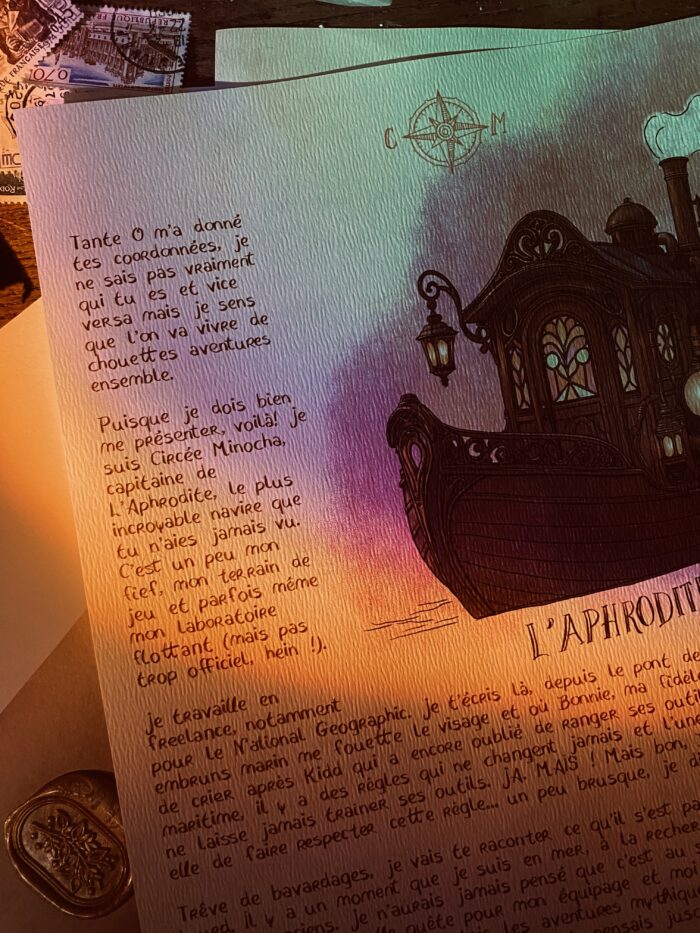 RÉPUBLIQUE FRANÇAISE
0,70
C M
Tante O m'a donné
tes coordonnées, je
ne sais pas vraiment
qui tu es et vice
versa mais je sens
que l'on va vivre de
chouettes aventures
ensemble.
Puisque je dois bien
me présenter, voilà! je
suis Circée Minocha,
capitaine de
L'Aphrodite, le plus
incroyable navire que
tu n'aies jamais vu.
C'est un peu mon
fief, mon terrain de
jeu et parfois même
mon laboratoire
flottant (mais pas
trop officiel, hein !).
L'APHRODIT
je travaille en
freelance, notamment
pour le National Geographic. je t'écris là, depuis le pont de
embruns marin me fouette le visage et où Bonnie, ma fidèl
de crier après Kidd qui a encore oublié de ranger ses outi
maritime, il y a des règles qui ne changent jamais et l'un
ne laisse jamais trainer ses outils. jA. MAIS ! Mais bon,
elle de faire respecter cette règle... un peu brusque, je di
Trêve de bavardages, je vais te raconter ce qu'il s'est pa
il y a un moment que je suis en mer, à la recher
je n'aurais jamais pensé que c'est au s
quête pour mon équipage et moi
les aventures mythiqu
pensais jusq